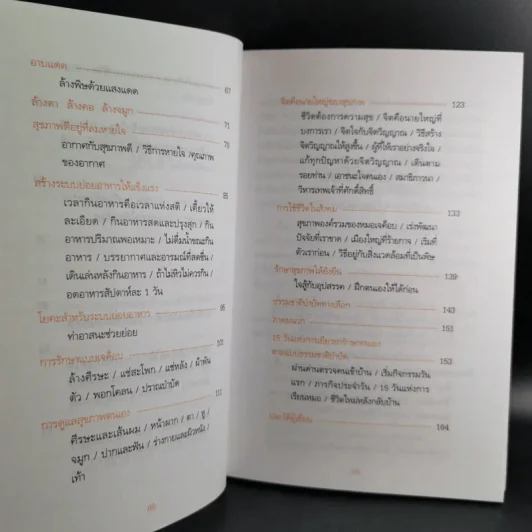 อาบแดด
ล้างพิษด้วยแสงแดด 67
ล้างตา ล้างคอ ล้างจมูก 71
สุขภาพดีอยู่ที่ลมหายใจ 75
อากาศกับสุขภาพดี / วิธีการหายใจ / คุณภาพ
ของอากาศ
สร้างระบบย่อยอาหารให้แข็งแรง 85
เวลากินอาหารคือเวลาแห่งสติ / เคี้ยวให้
ละเอียด / กินอาหารสดและปรุงสุก / กิน
อาหารปริมาณพอเหมาะ / ไม่ดื่มน้ำขณะกิน
อาหาร / บรรยากาศและอารมณ์ที่สดชื่น /
เดินเล่นหลังกินอาหาร / ถ้าไม่หิวไม่ควรกิน /
อดอาหารสัปดาห์ละ 1 วัน
โยคะสำหรับระบบย่อยอาหาร 95
ท่าอาสนะช่วยย่อย
การรักษาแบบเจ็คียบ 101
ล้างศีรษะ / แช่สะโพก / แช่หลัง / ผ้าพัน
ตัว / พอกโคลน / ปราณบำบัด
การดูแลสุขภาพตนเอง 111
ศีรษะและเส้นผม / หน้าผาก / ตา / หู /
จมูก / ปากและฟัน / ร่างกายและผิวหนัง /
เท้า
จิตคือนายใหญ่ของสุขภาพ 123
ชีวิตต้องการความสุข / จิตคือนายใหญ่ที่
บงการเรา / จิตใจกับจิตวิญญาณ / วิธีสร้าง
จิตวิญญาณให้สูงขึ้น / ผู้ที่ให้เราอย่างจริงใจ /
แก้ทุกปัญหาด้วยจิตวิญญาณ / เดินตาม
รอยท่าน / เอาชนะใจตนเอง / สมาธิภาวนา /
วิหารเทพเจ้าที่ศักดิ์สิทธิ์
การใช้ชีวิตในสังคม 133
สุขภาพองค์รวมของหมอเจคียบ / เร่งพัฒนา
ปัจจัยที่เราขาด / เมืองใหญ่ที่ร้ายกาจ / เริ่มที่
ตัวเราก่อน / วิธีอยู่กับสิ่งแวดล้อมที่เป็นพิษ
รักษาสุขภาพให้ยั่งยืน 139
ใจสู้กับอุปสรรค / ฝึกตนเองให้ได้ก่อน
ธรรมชาติบำบัดทางเลือก 143
ภาคผนวก 151
15 วันแห่งการเยียวยารักษาตนเอง
ตามแบบธรรมชาติบำบัด 153
ผ่านด่านตรวจคนเข้าบ้าน / เริ่มกิจกรรมวัน
แรก / ภารกิจประจำวัน / 15 วันแห่งการ
เรียนหมอ / ชีวิตใหม่หลังกลับบ้าน
ประวัติผู้เขียน 164